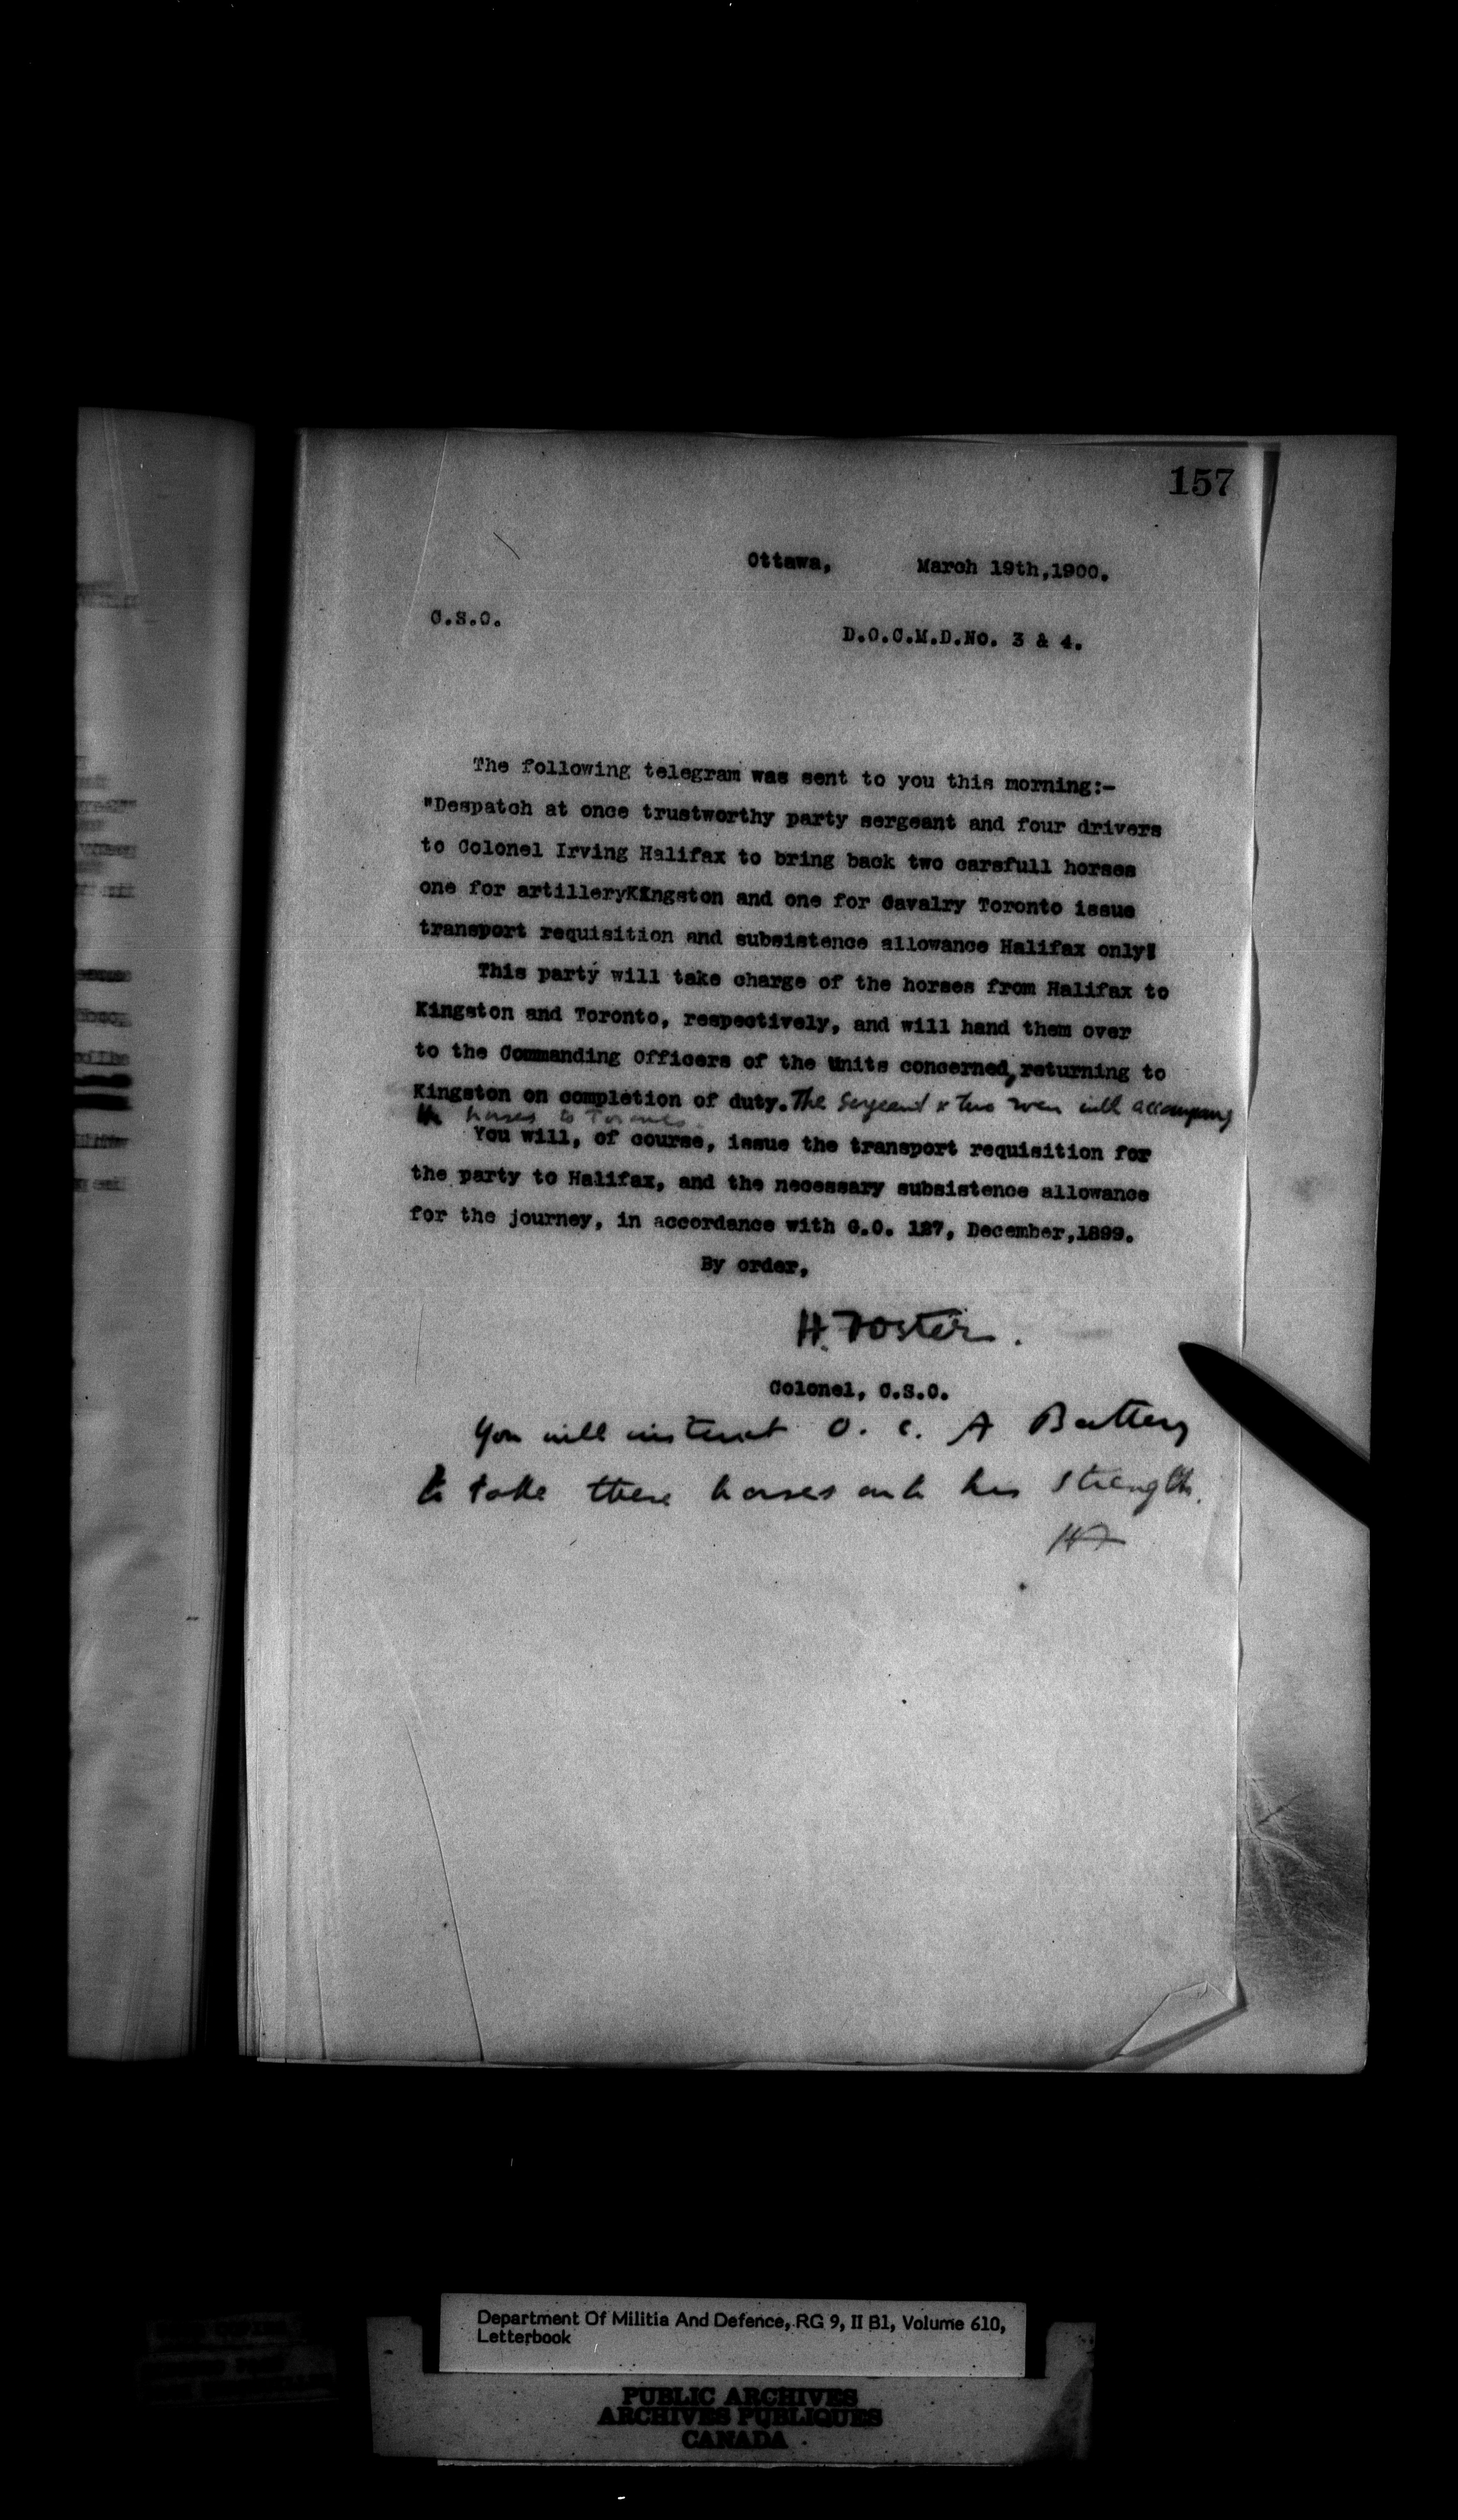 157
Ottawa, March 19th,1900.
C.S.O.
D.O.C.M.D.No. 3 & 4.
The following telegram was sent to you this morning:-
"Despatch at once trustworthy party sergeant and four drivers
to Colonel Irving Halifax to bring back two carsfull horses
one for artilleryKingston and one for Cavalry Toronto issue
transport requisition and subsistence allowance Halifax only"
This party will take charge of the horses from Halifax to
Kingston and Toronto, respectively, and will hand them over
to the Commanding Officers of the Units concerned, returning to
Kingston on completion of duty. The Sergeant & two men will accompany
the horses to Toronto.
You will, of course, issue the transport requisition for
the party to Halifax, and the necessary subsistence allowance
for the journey, in accordance with G.O. 127, December,1899.
By order,
H. Foster.
Colonel, C.S.O.
You will instruct O. C. A Battery
to take these horses on to his strength.
HF
Department Of Militia And Defence, RG 9, II B1, Volume 610,
Letterbook
PUBLIC ARCHIVES
ARCHIVES PUBLIQUES
CANADA